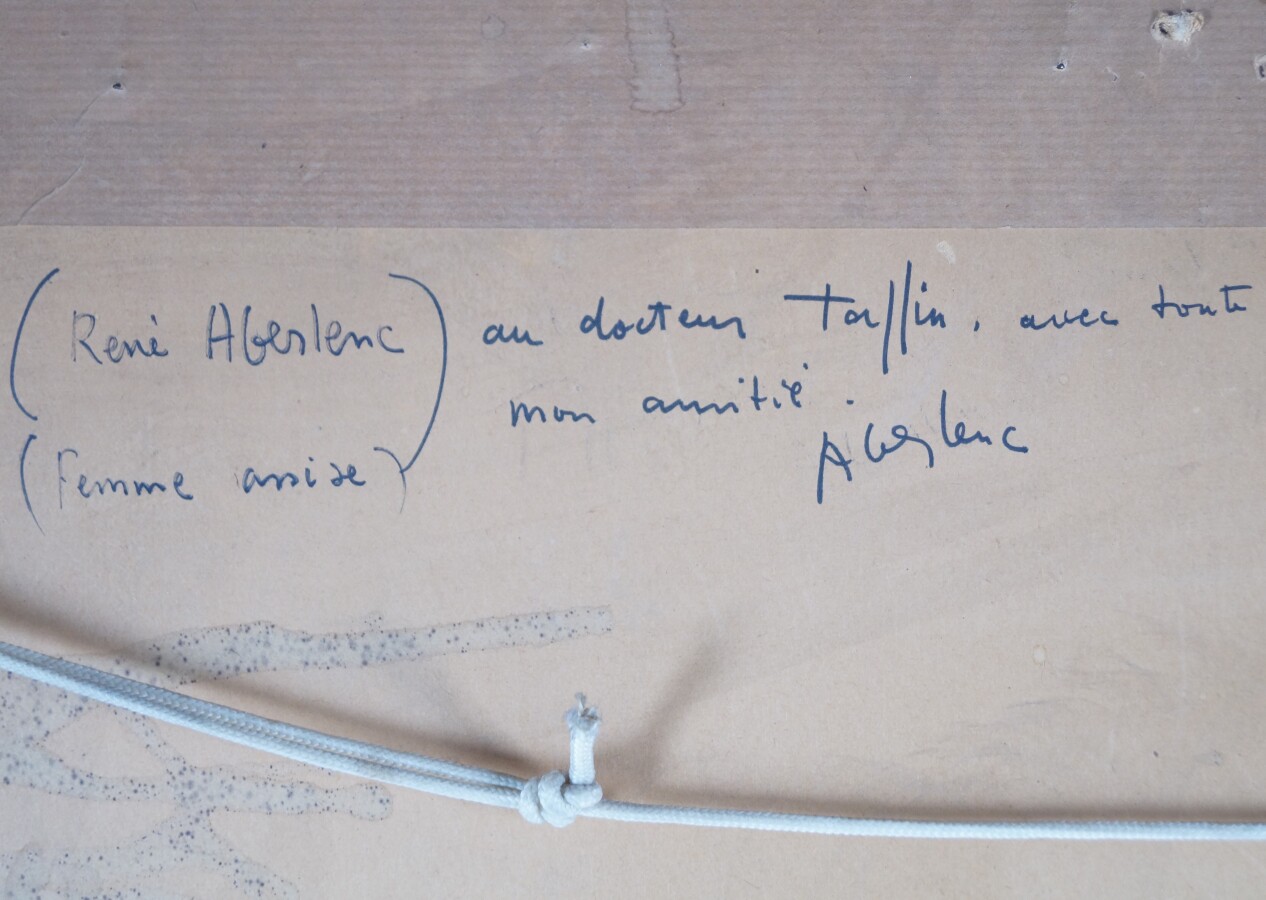 (René Aberlenc) au docteur Taffin, avec toute
mon amitié.
(Femme assise)
Aberlenc